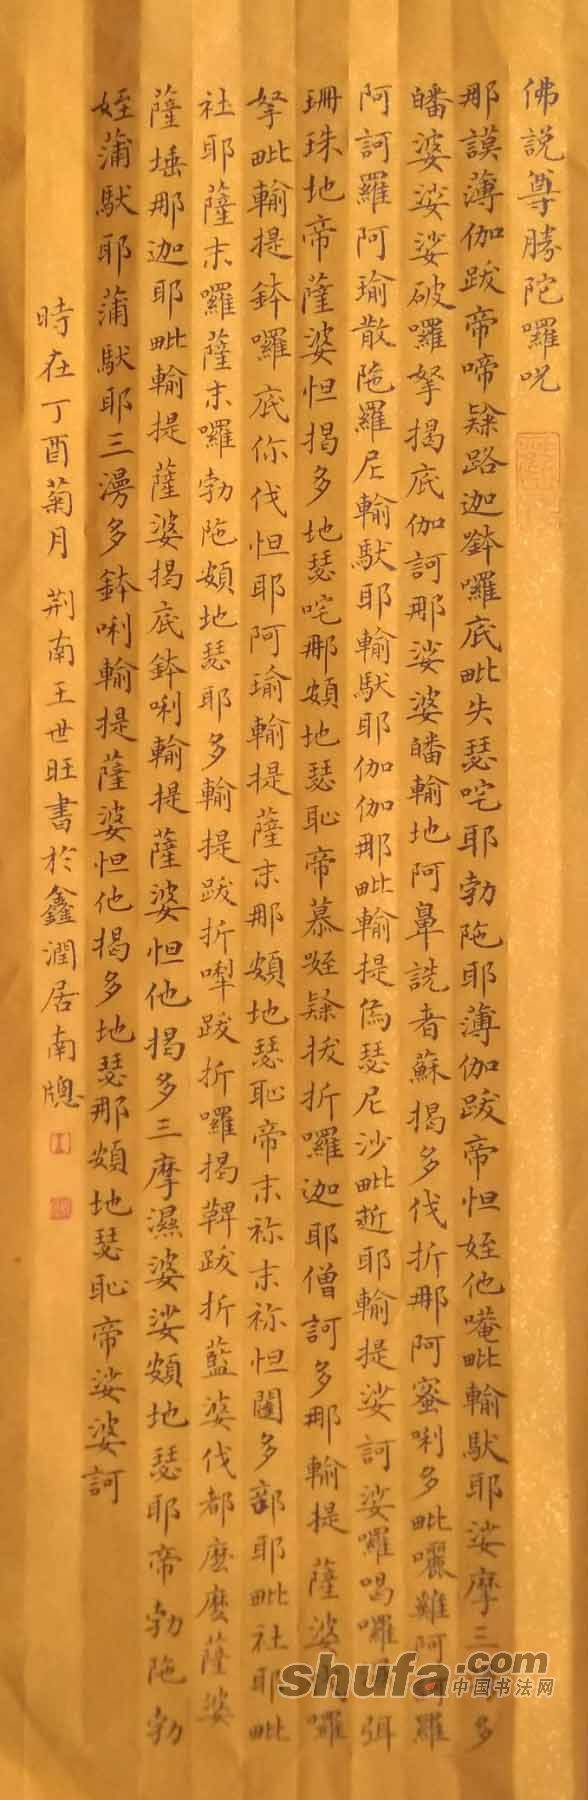 佛説尊勝陀囉呪
那謨薄伽跋帝啼隸路迦鉢囉底毗失瑟咤耶勃陁耶薄伽跋帝怛姪他唵毗輸馱耶娑摩三多
皤婆娑娑破囉拏揭底伽訶那娑婆皤輸地阿鼻詵者蘇揭多伐折那阿蜜唎多毗囇雞阿羅
阿訶羅阿瑜散陁羅尼輸馱耶輸馱耶伽伽那毗輸提烏瑟尼沙毗逝耶輸提娑訶娑囉喝囉弭
珊珠地帝薩婆怛揭多地瑟咤那頞地瑟耻帝慕姪隸拔折囉迦耶僧訶多那輸提薩婆囉
拏毗輸提鉢囉底你伐怛耶阿瑜輸提薩末那頞地瑟耻帝末祢末祢怛闥多部耶毗社耶毗
社耶薩末囉薩末囉勃陁頞地瑟耶多輸提跋折嚟跋折囉揭鞞跋折藍婆伐都麽麽薩婆
薩埵那迦耶毗輸提薩婆揭底鉢唎輸提薩婆怛他揭多三摩濕婆娑頞地瑟耶帝勃陁勃
姪蒲馱耶蒲馱耶三漫多鉢唎輸提薩婆怛他揭多地瑟那頞地瑟耻帝娑婆訶
時在丁酉菊月荆南王世旺書於鑫潤居南牕
shufa.com
中国书法网